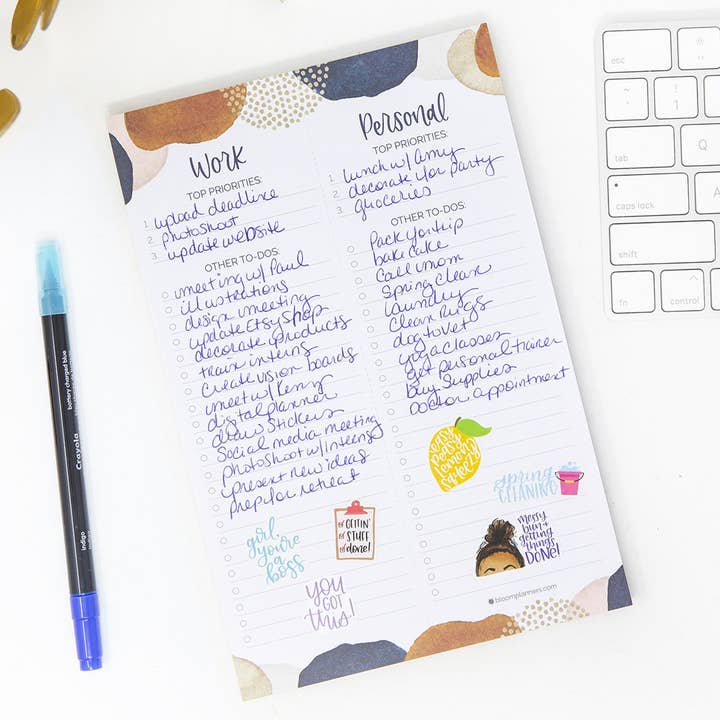 Work
TOP PRIORITIES:
1. upload deadline
2. photoshoot
3. update website
OTHER TO-DOS:
meeting w/ Paul
illustrations
design meeting
update Etsy Shop
decorate products
train interns
create vision boards
meet w/ Kenny
digital planner
draw Stickers
Social media meeting
photoshoot w/ interns
present new ideas
prep for retreat
girl,
you're
a
boss
#
GETTIN'
STUFF
done!
YOU
GOT
this!
Personal
TOP PRIORITIES:
1. lunch w/ Amy
2. decorate for party
3. groceries
OTHER TO-DOS:
Pack for trip
bake cake
Call mom
Spring clean
laundry
Clean Rugs
dog to vet
yoga classes
get personal trainer
Buy Supplies
Doctor appointment
easy
peasy
lemon
squeezy
spring
CLEANING
Messy
bun +
getting
things
DONE!
bloomplanners.com
battery charged blue
Crayola
indigo
esc
~
`
!
1
tab
Q
caps lock
A
shift
fn
control